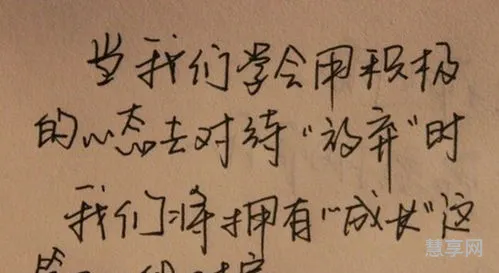 当我们学会用积极
的心态去对待“放弃”时
我们将拥有“成长”这
慧享网